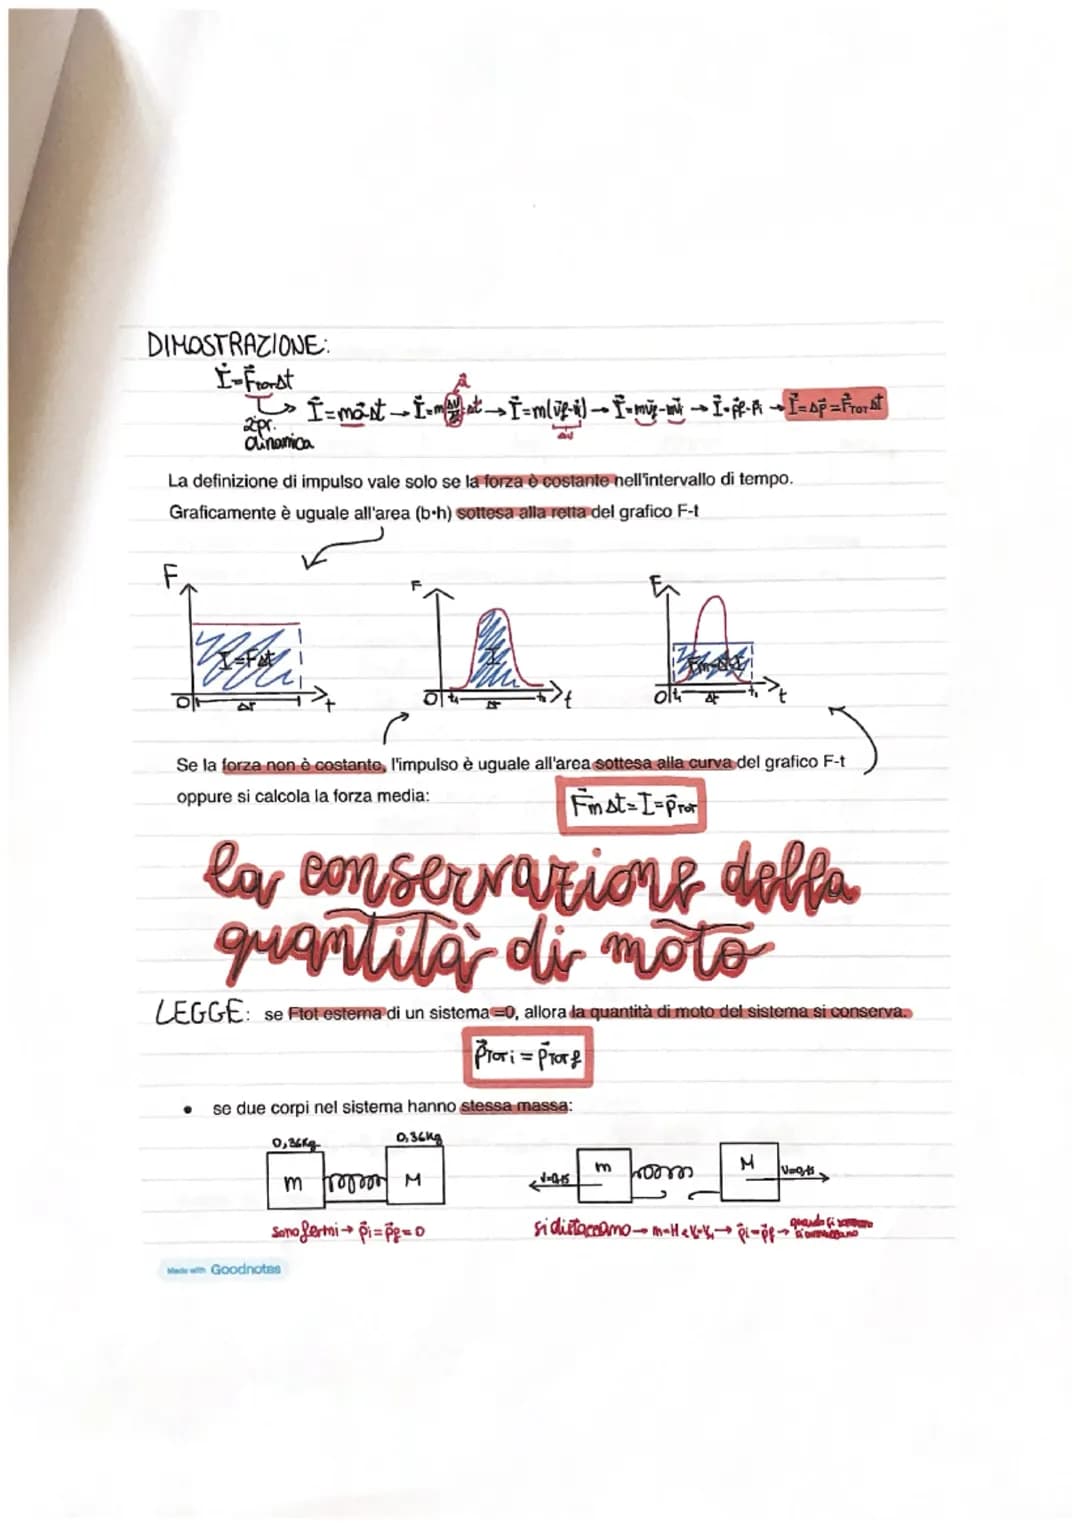 DIMOSTRAZIONE:
I⃗=F⃗TOTΔt
2°pr. dinamica
I⃗=ma⃗Δt → I⃗=m Δv/Δt Δt → I⃗=m(v⃗f-v⃗i) → I⃗=mv⃗f-mv⃗i → I⃗=p⃗f-p⃗i → I⃗=Δp⃗=F⃗TOTΔt
a⃗
Δv
La definizione di impulso vale solo se la forza è costante nell'intervallo di tempo.
Graficamente è uguale all'area (b·h) sottesa alla retta del grafico F-t
F F F
I=FΔt I Fm·Δt=I
O Δt t O Δt t O Δt t
Se la forza non è costante, l'impulso è uguale all'area sottesa alla curva del grafico F-t
oppure si calcola la forza media:
F⃗mΔt=I=p⃗TOT
la conservazione della
quantità di moto
LEGGE: se Ftot esterna di un sistema =0, allora la quantità di moto del sistema si conserva.
p⃗TOTi = p⃗TOTf
• se due corpi nel sistema hanno stessa massa:
0,36kg 0,36kg
m M m M
sono fermi → p⃗i=p⃗f=0
si distaccano → p⃗i=p⃗f → quando si
Made with Goodnotes